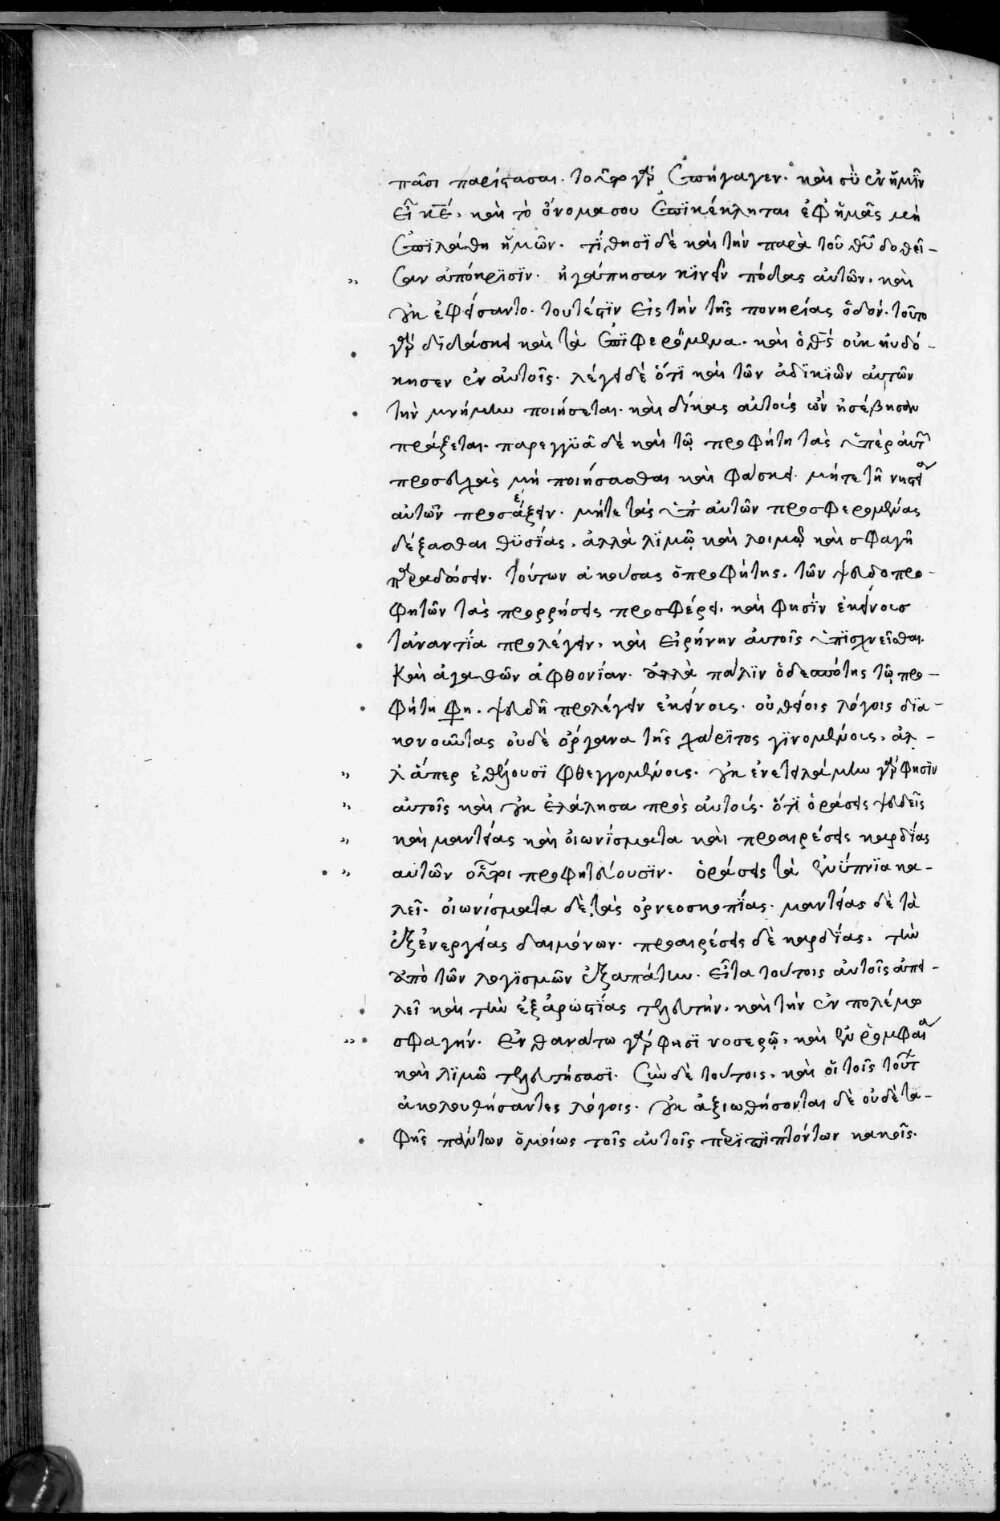 πᾶσι παρίστασαι. τοῦτο γὰρ ἐπήγαγεν. καὶ σὺ ἐν ἡμῖν
εἶ κ̅ε̅. καὶ τὸ ὄνομα σου ἐπικέκληται ἐφ ἡμᾶς μὴ
ἐπϊλάθη ἡμῶν. τίθησϊ δὲ καὶ τὴν παρὰ τοῦ θ̅υ̅ δοθεῖ-
σαν ἀπόκρϊσϊν. ἠγάπησαν κϊνεῖν πόδας αὐτῶν. καὶ
οὐκ ἐφείσαντο. τουτέστϊν εἰς τὴν τῆς πονηρίας ὁδόν. τοῦτο
γὰρ δϊδάσκει καὶ τὰ ἐπϊφερόμενα. καὶ ὁ θ̅ς̅ οὐκ ηὐδό-
κησεν ἐν αὐτοῖς. λέγει δὲ ὅτϊ καὶ τῶν ἀδϊκϊῶν αὐτῶν
τὴν μνήμην ποιήσεται. καὶ δίκας αὐτοὺς ὧν ἠσέβησαν
πράξεται. παρεγγϋᾶ δὲ καὶ τῶ προφήτη τὰς ὑπὲρ αὐτῶν
προσευχὰς μὴ ποιήσασθαι καὶ φάσκει. μήτε τῆ νηστεία
αὐτῶν προσέξειν. μήτε τὰς ὑπ αὐτῶν προσφερομένας
δέξασθαι θϋσίας. ἀλλὰ λϊμῶ καὶ λοιμῶ καὶ σφαγῆ
παραδώσειν. τούτων ἀκούσας ὁ προφήτης. τῶν ψευδοπρο-
φητῶν τὰς προρρήσεις προσφέρει. καὶ φησῒν ἐκείνους
τἀναντία προλέγειν. καὶ εἰρήνην αὐτοῖς ὑπϊσχνεῖσθαι.
καὶ ἀγαθῶν ἀφθονίαν. ἀλλὰ πάλϊν ὁ δεσπότης τῶ προ-
φήτη φη. ψευδῆ προλέγειν ἐκείνους. οὐ θείοις λόγοις δϊα-
κονοῦντας οὐδὲ ὄργανα τῆς χάρϊτος γϊνομένους. ἀλ-
λ ἅπερ ἐθέλουσϊ φθεγγομένους. οὐκ ἐνετειλάμην γάρ φησϊν
αὐτοῖς καὶ οὐκ ἐλάλησα πρὸς αὐτούς. ὅτϊ ὁράσεις ψευδεῖς
καὶ μαντείας καὶ οἰωνίσματα καὶ προαιρέσεις καρδίας
αὐτῶν οὗτοι προφητεύουσϊν. ὁράσεις τὰ ἐνύπνϊα κα-
λεῖ. οἰωνίσματα δὲ τὰς ὀρνεοσκοπίας. μαντείας δὲ τὰ
ἐξ ἐνεργείας δαιμόνων. προαιρέσεις δὲ καρδίας. τὴν
ἀπὸ τῶν λογϊσμῶν ἐξαπάτην. εἶτα τούτοις αὐτοῖς ἀπει-
λεῖ καὶ τὴν ἐξ ἀρωστίας τελευτήν. καὶ τὴν ἐν πολέμω
σφαγήν. ἐν θανάτω γάρ φησϊ νοσερῶ. καὶ ἐν ῥομφαία
καὶ λϊμῶ τελευτήσασϊ. σὺν δὲ τούτοις. καὶ οἱ τοῖς τούτων
ἀκολουθήσαντες λόγοις. οὐκ ἀξιωθήσονται δὲ οὐδὲ τα-
φῆς πάντων ὁμοίως τοῖς αὐτοῖς περϊπϊπτόντων κακοῖς.